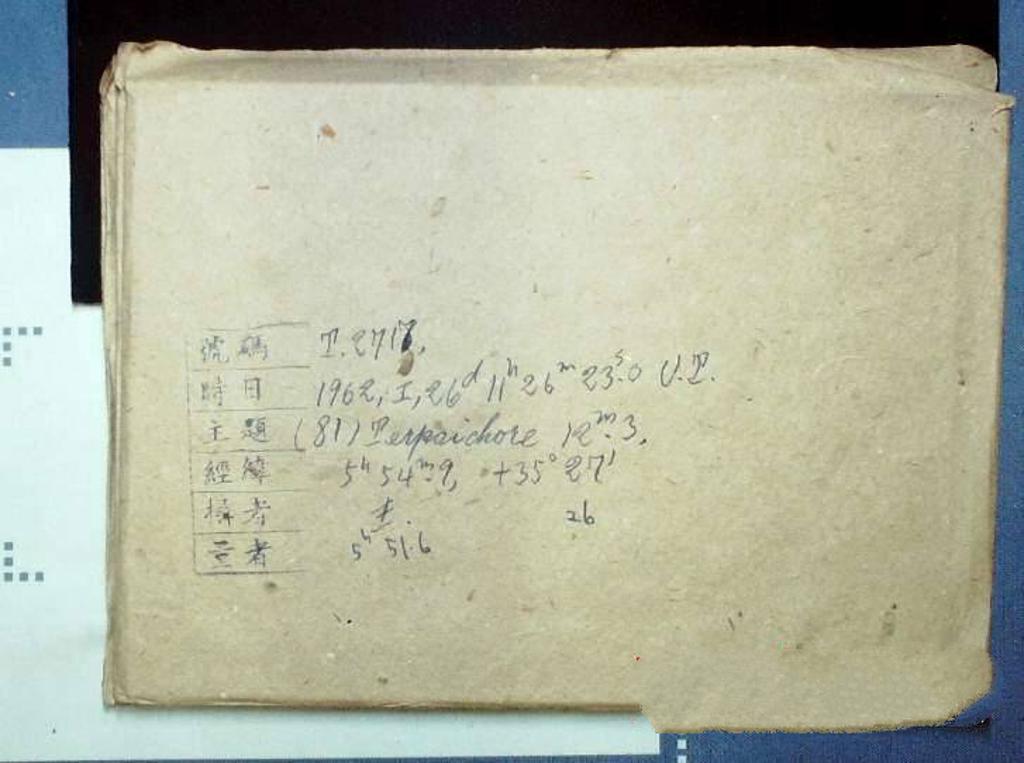 號碼 T. 2717.
時日 1962, I, 26ᵈ 11ʰ 26ᵐ 23ˢ.0 U.T.
主題 (81) Terpsichore 12ᵐ.3.
經緯 5ʰ 54ᵐ.9, +35° 27'
攝者 26
量者 5ʰ 51.6